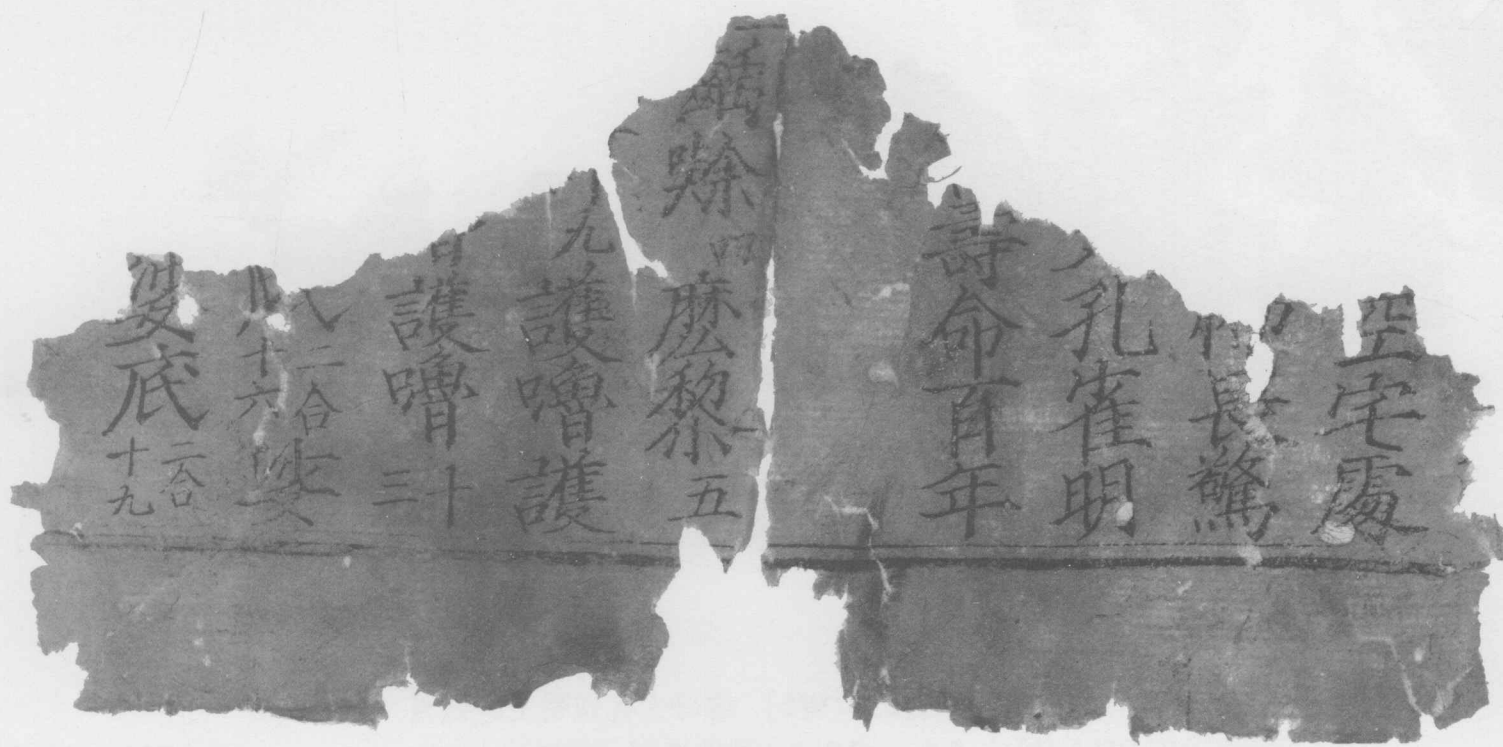 空宅處
長驚
孔雀明
壽命百年
四麽黎五
九護嚕護
護嚕十三
二合十六
底二合十九